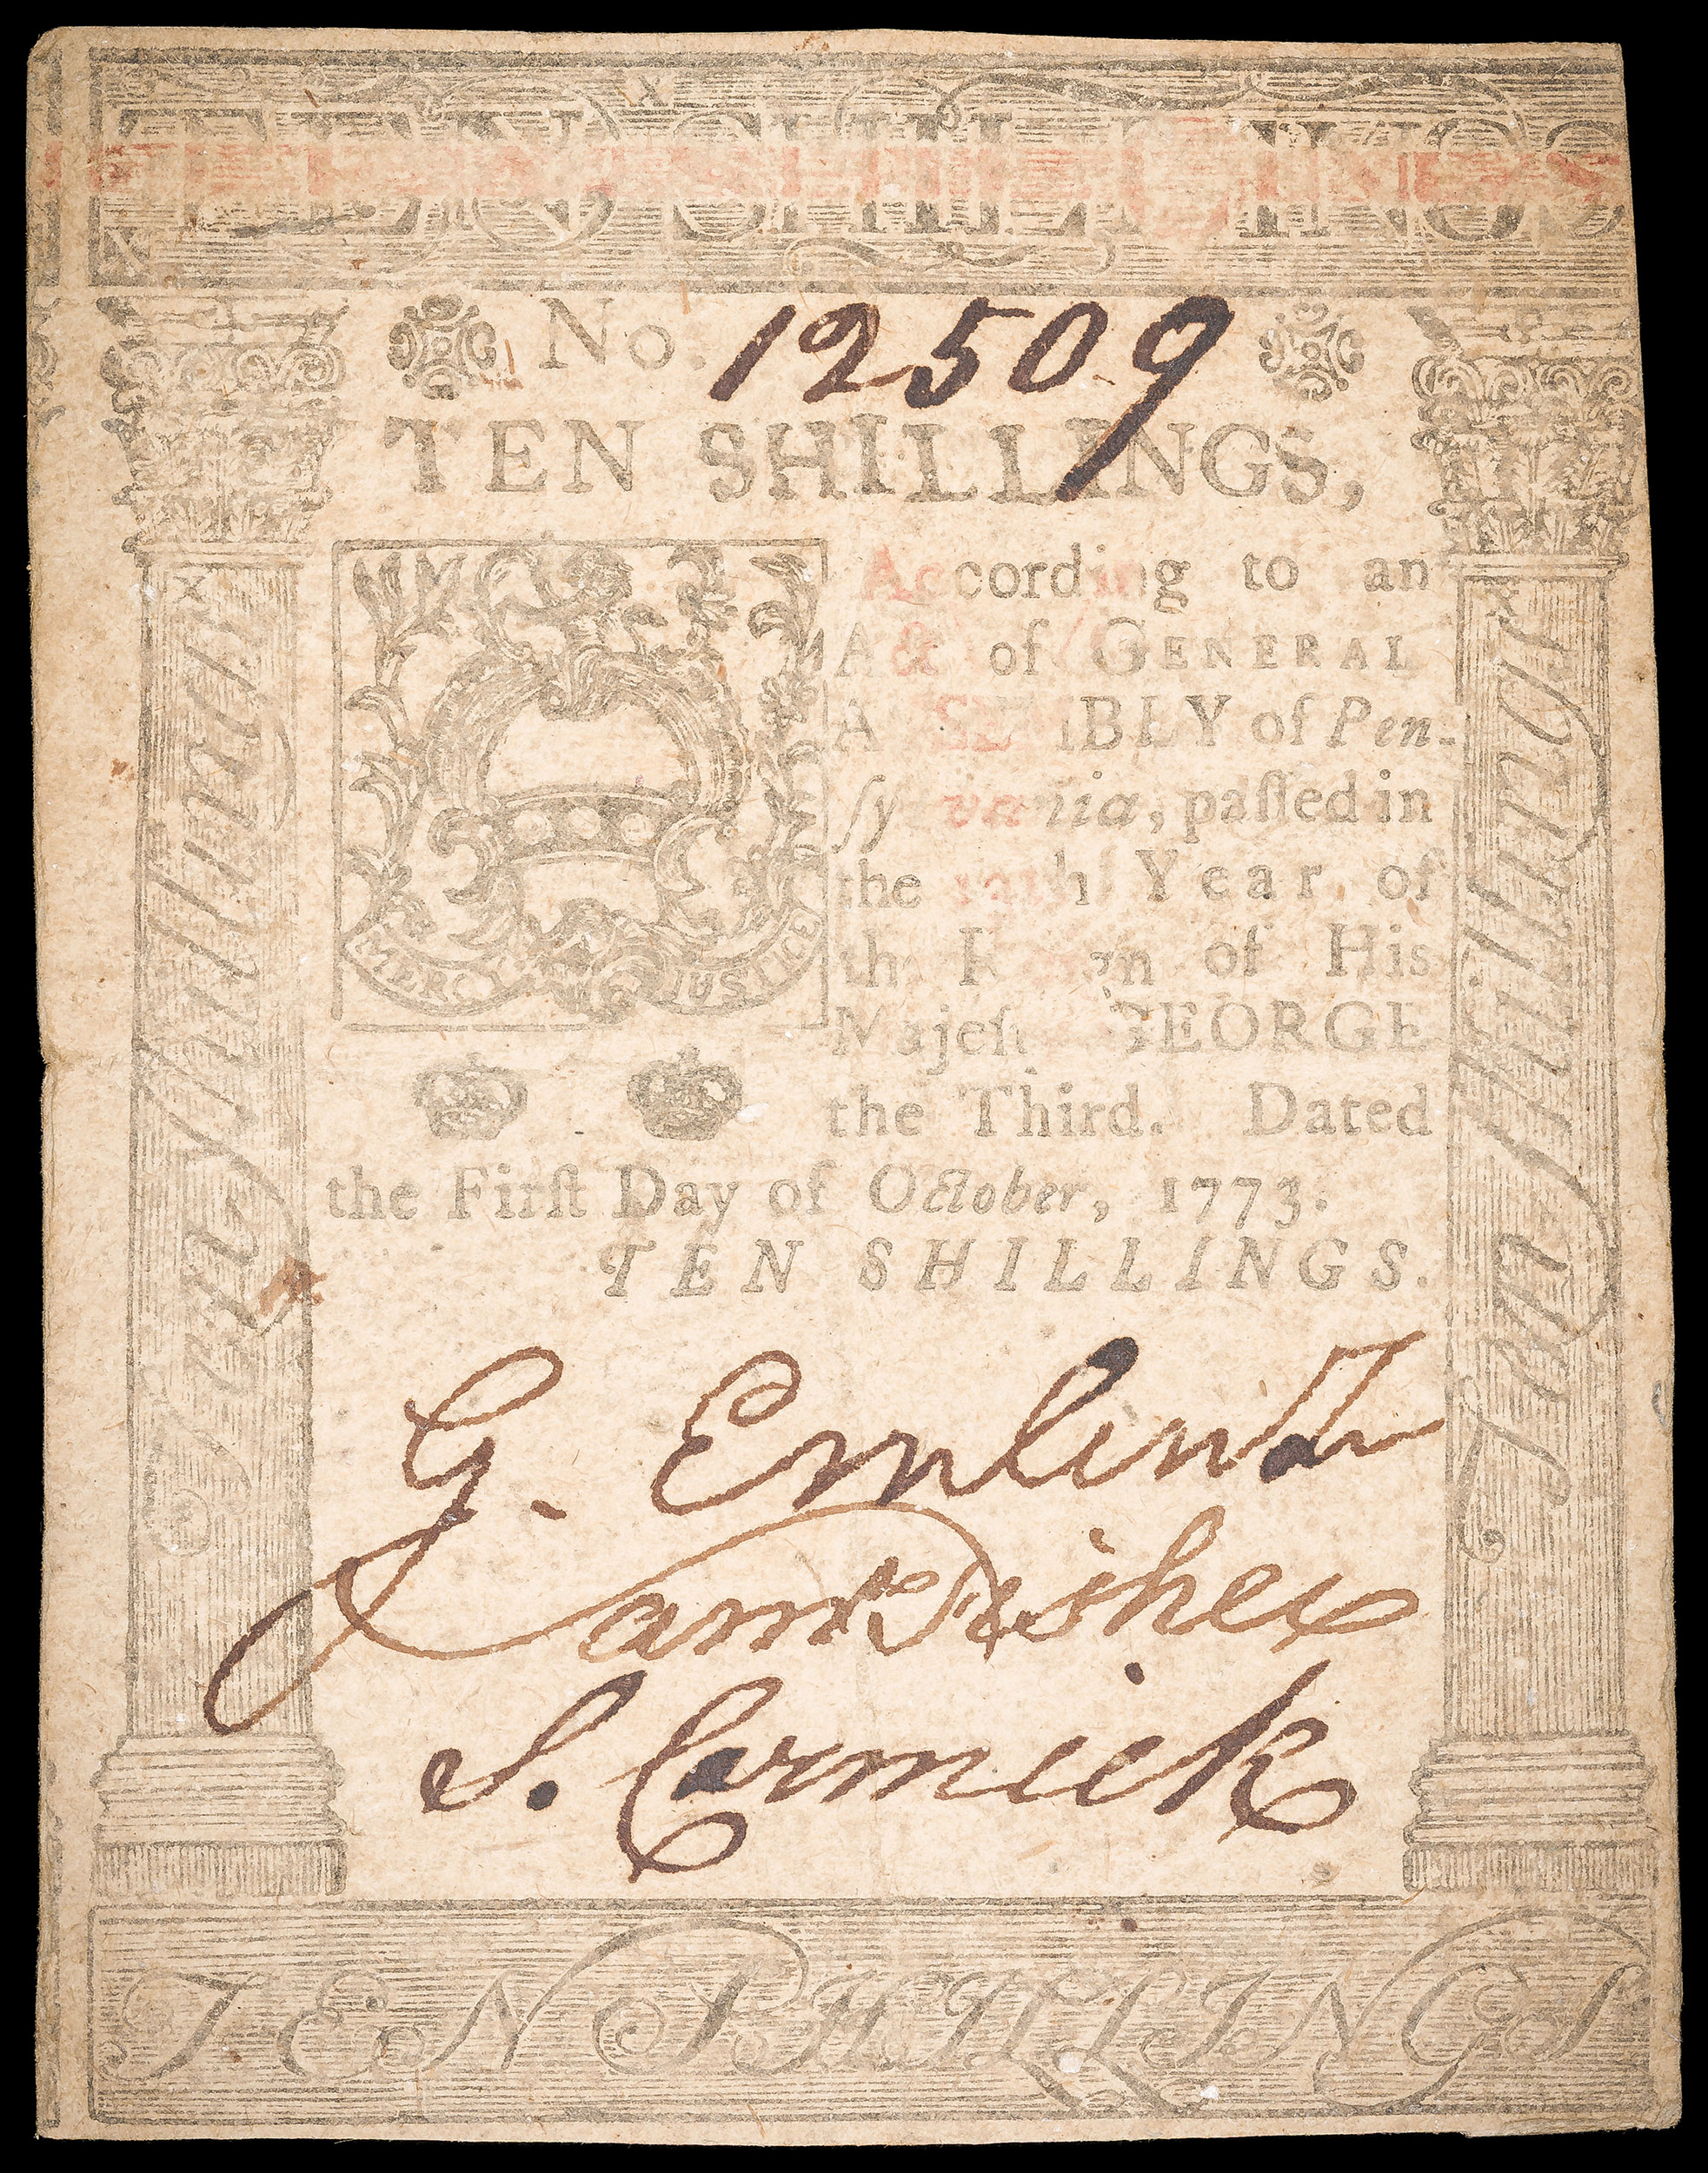 TEN SHILLINGS
No. 12509
TEN SHILLINGS,
According to an
Act of GENERAL
ASSEMBLY of Pen-
ſylvania, paſſed in
the Year of
the Reign of His
Majeſty GEORGE
the Third. Dated
the Firſt Day of October, 1773.
TEN SHILLINGS.
MERCY JUSTICE
Ten Shillings
Ten Shillings
G. Emlen
S. Cormick
TEN SHILLINGS